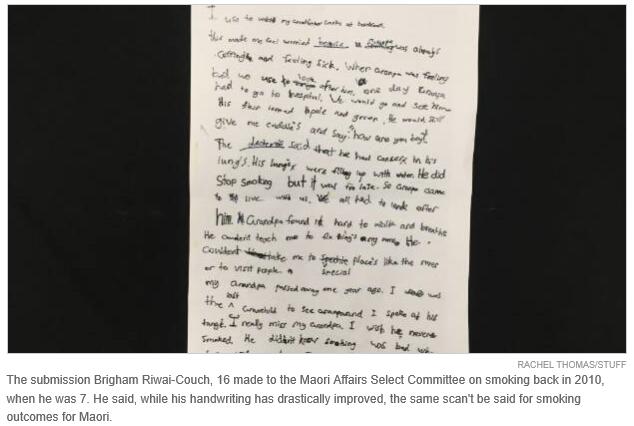 I use to watch my grandfather
this made me feel worried because was always
coffing and feeling sick. When Grampa was feeling
bad we use to look after him. one day Grampa
had to go to hospital. We would go and see him
His skin looked and green. He would still
give me cuddle's and say "how are you boy".
The said that he had cancer in his
lung's. His lungs were filling up with water. He did
stop smoking but it was too late. So Grampa came
to live with us. We all had to look after
him. Grandpa found it hard to walk and breathe
He couldn't teach me to fix thing's any more. He
couldent take me to special place's like the river
or to visit people.
my Grandpa passed away one year ago. I was
the last to see I spoke at his
I really miss my Grandpa. I wish he never
smoked. He didn't know smoking was bad
RACHEL THOMAS/STUFF
The submission Brigham Riwai-Couch, 16 made to the Maori Affairs Select Committee on smoking back in 2010,
when he was 7. He said, while his handwriting has drastically improved, the same scan't be said for smoking
outcomes for Maori.